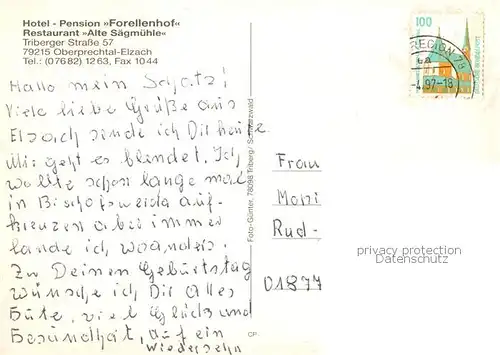 Hotel - Pension »Forellenhof«
Restaurant »Alte Sägmühle«
Triberger Straße 57
79215 Oberprechtal-Elzach
Tel.: (07682) 1263, Fax 1044
Hallo mein Schatz!
Viele liebe Grüße aus
Elzach sende ich Dir heute.
Mir geht es blendet. Ich
wollte schon lange mal
in Bischofswerda auf-
kreuzen aber immer
lande ich woanders.
Zu Deinen Geburtstag
wünsche ich Dir alles
Gute, viel Glück und
Gesundheit, auf ein
Wiedersehn
CP
Foto-Günter, 78098 Triberg / Schwarzwald
100
REGION 78
-4.97-18
Frau
Moni
Rud-
01877
privacy protection
Datenschutz